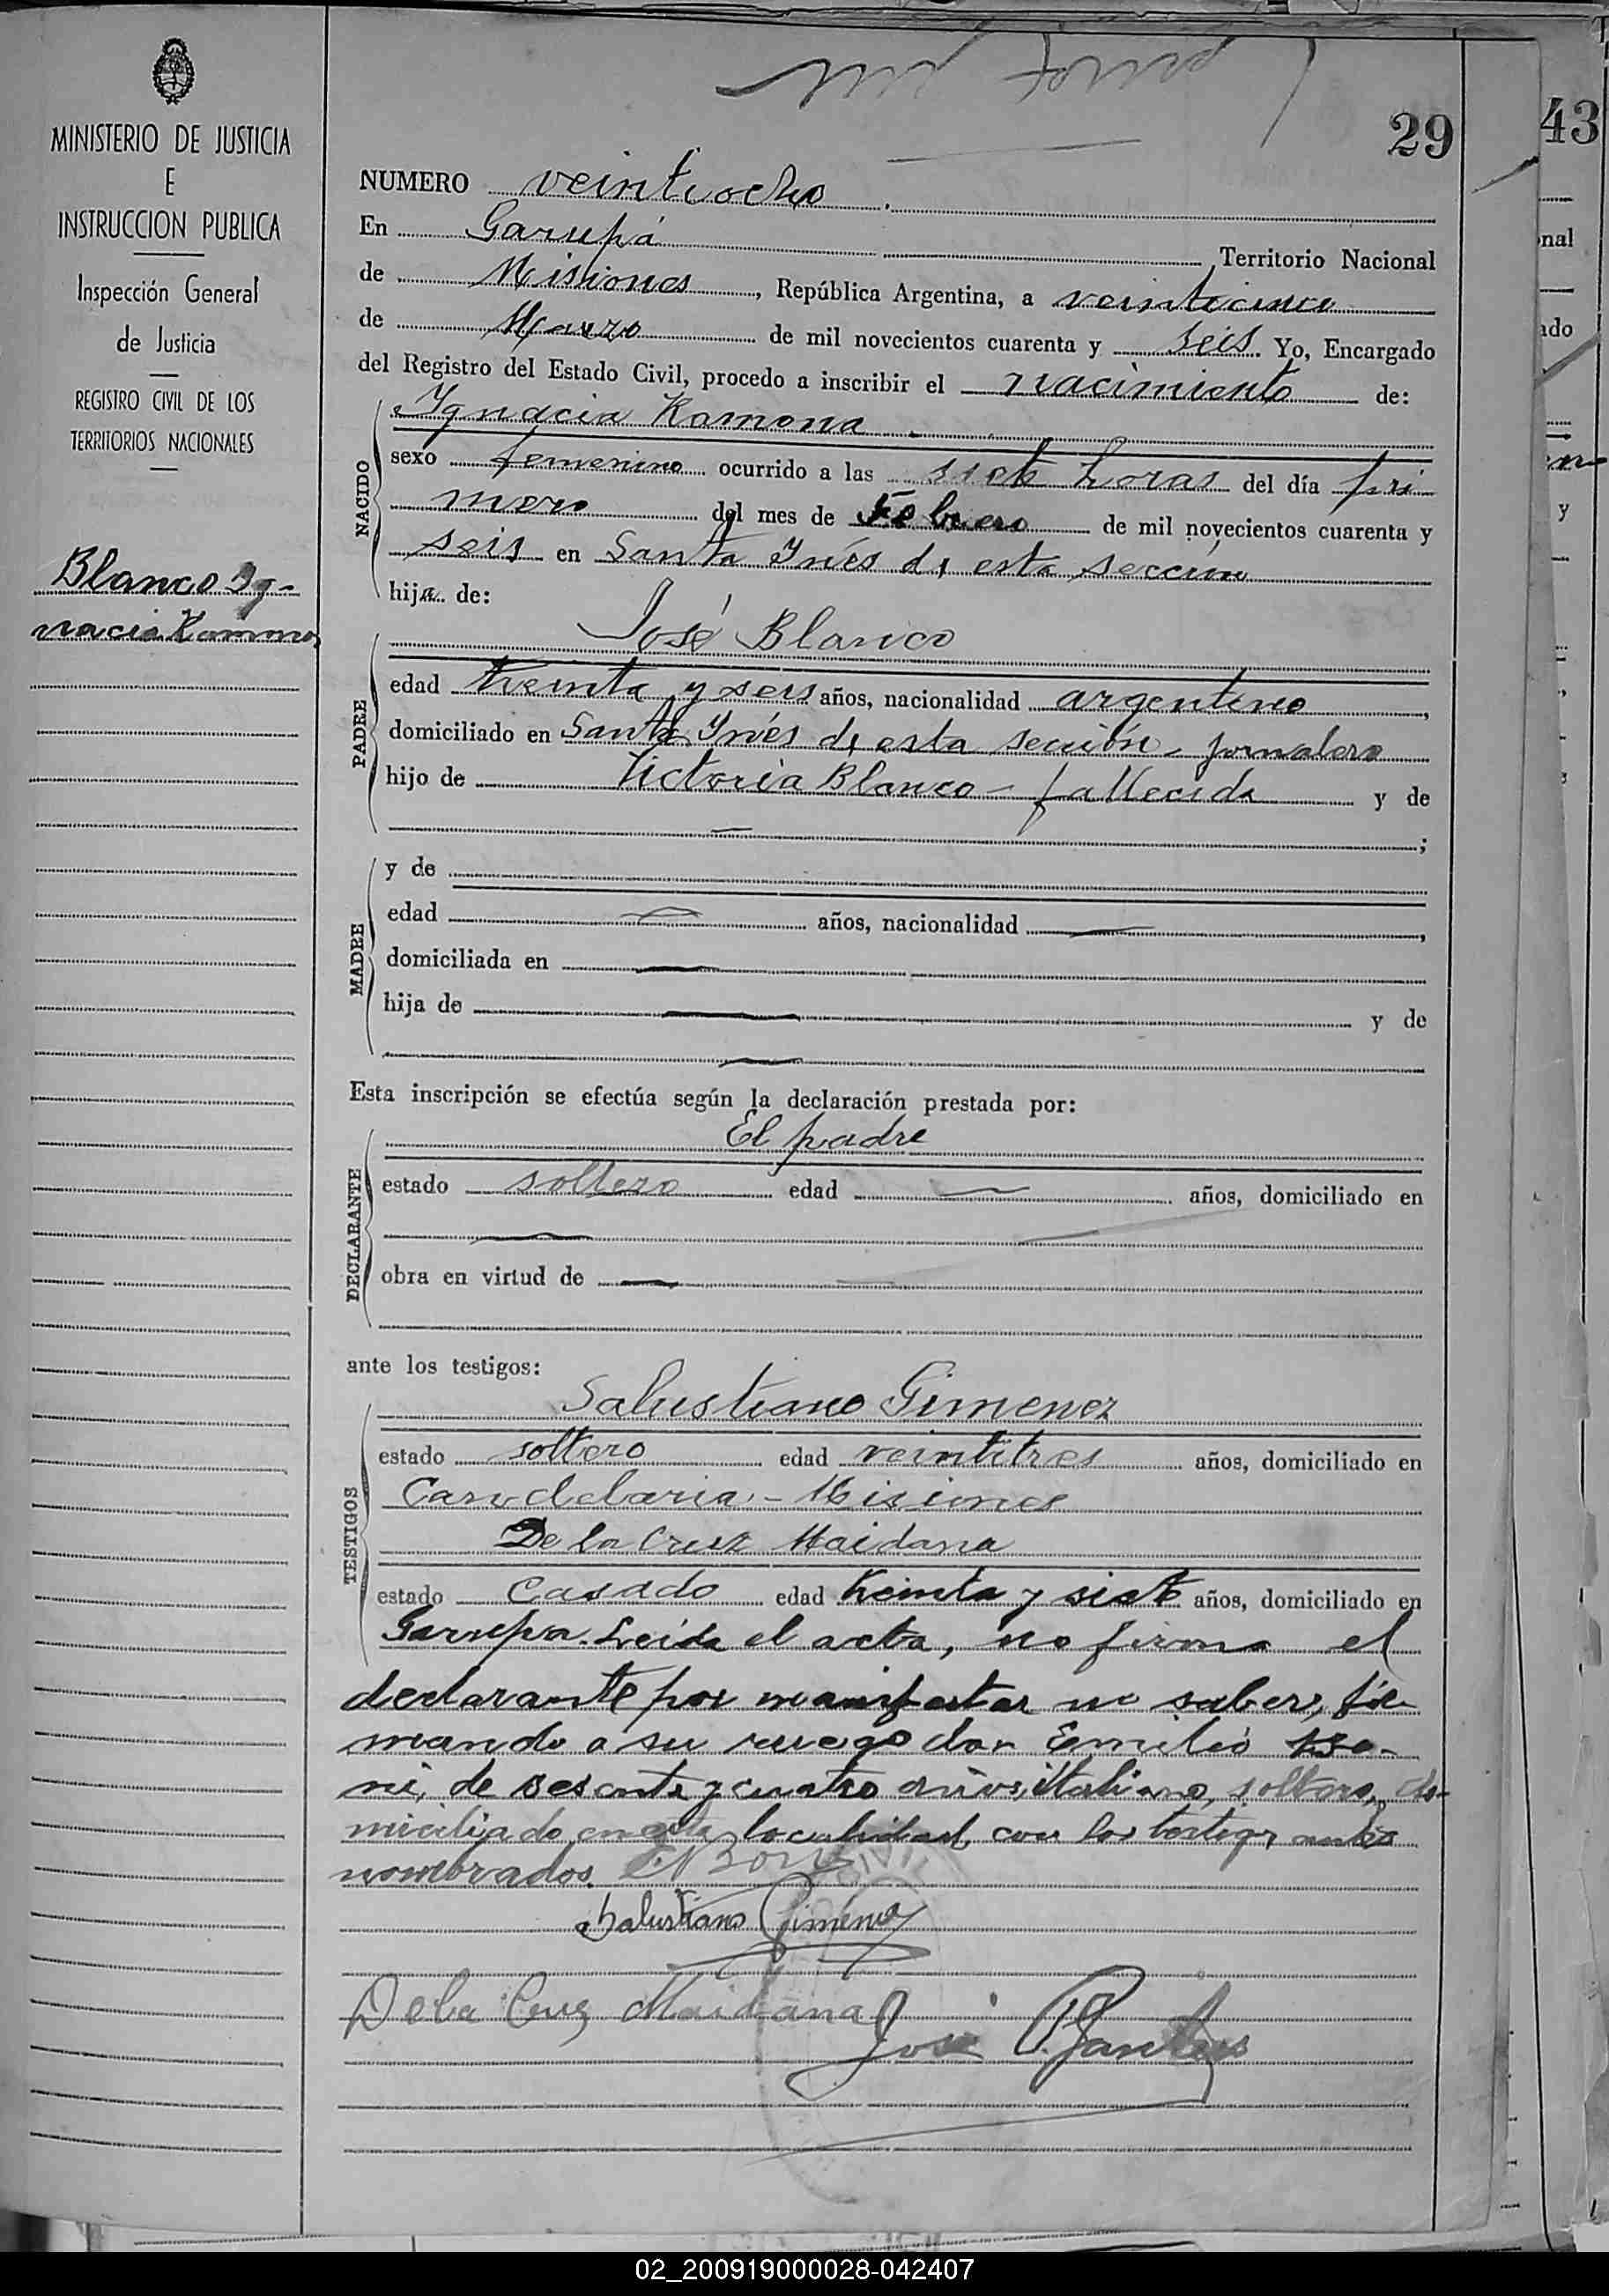 MINISTERIO DE JUSTICIA
E
INSTRUCCION PUBLICA
Inspección General
de Justicia
REGISTRO CIVIL DE LOS
TERRITORIOS NACIONALES
Blanco Yg-
nacia Ramona
29
NUMERO veintiocho
En Garupá Territorio Nacional
de Misiones, República Argentina, a veinticinco
de Marzo de mil novecientos cuarenta y seis. Yo, Encargado
del Registro del Estado Civil, procedo a inscribir el nacimiento de:
NACIDO
Ygnacia Ramona
sexo femenino ocurrido a las siete horas del día pri
mero del mes de Febrero de mil novecientos cuarenta y
seis en Santa Ynés de esta sección
hija de:
PADRE
José Blanco
edad treinta y seis años, nacionalidad argentino,
domiciliado en Santa Ynés de esta sección - jornalero
hijo de Victoria Blanco - fallecida y de
— ;
MADRE
y de
edad — años, nacionalidad —,
domiciliada en —
hija de — y de
—
Esta inscripción se efectúa según la declaración prestada por:
DECLARANTE
El padre
estado soltero edad — años, domiciliado en
—
obra en virtud de —
ante los testigos:
TESTIGOS
Salustiano Gimenez
estado soltero edad veintitres años, domiciliado en
Candelaria - Misiones
De la Cruz Maidana
estado Casado edad treinta y siete años, domiciliado en
Garupa. Leída el acta, no firma el
declarante por manifestar no saber, fir-
mando a su ruego don Emilio Bo-
ni, de sesenta y cuatro años, italiano, soltero, do-
miciliado en esta localidad, con los testigos antes
nombrados. E. Boni
Salustiano Giménez
De la Cruz Maidana
José
43
nal
ado
y
02_200919000028-042407